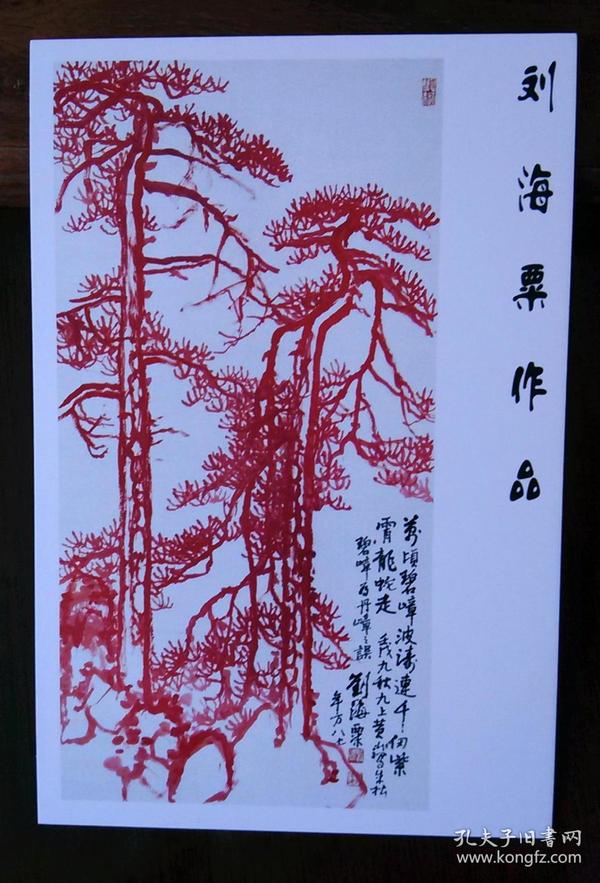 刘海粟作品
万顷碧嶂波涛连千々仞紫
霄龙蛇走 壬戌九秋九上黄山写朱松
碧嶂为丹嶂之误
劉海粟
年方八七
孔夫子旧书网
www.kongfz.com